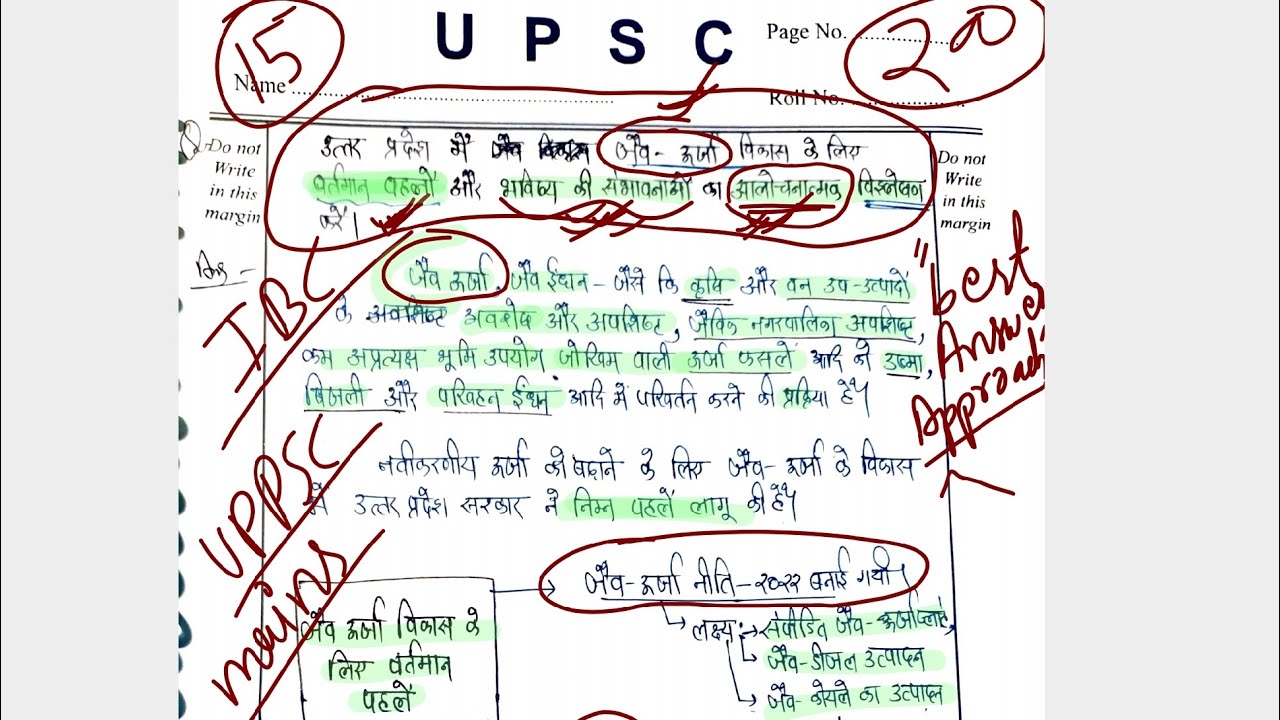 15
UPSC
Page No. ..................
20
Name ............................................................
Roll No. ............................
Do not
Write
in this
margin
उत्तर प्रदेश में जैव-ऊर्जा विकास के लिए
वर्तमान पहलों और भविष्य की संभावनाओं का आलोचनात्मक विश्लेषण
करें।
Do not
Write
in this
margin
जैव ऊर्जा, जैव ईंधन - जैसे कि कृषि और वन उप-उत्पादों
के अवशिष्ट अवशेष और अपशिष्ट, जैविक नगरपालिका अपशिष्ट,
कम अप्रत्यक्ष भूमि उपयोग जोखिम वाली ऊर्जा फसलें आदि को उष्मा,
बिजली और परिवहन ईंधन आदि में परिवर्तन करने की प्रक्रिया है।
"best
Answer
Approach
IBC
UPPSC
mains
नवीकरणीय ऊर्जा को बढ़ाने के लिए जैव-ऊर्जा के विकास
में उत्तर प्रदेश सरकार ने निम्न पहलें लागू की हैं।
जैव-ऊर्जा नीति-२०२२ बनाई गयी।
जैव ऊर्जा विकास के
लिए वर्तमान
पहलें
लक्ष्य: → संपीडित जैव-ऊर्जा
→ जैव-डीजल उत्पादन
→ जैव-कोयले का उत्पादन